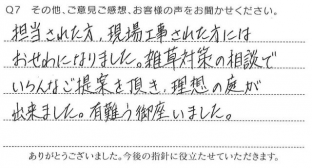 Q7 その他、ご意見ご感想、お客様の声をお聞かせください。
担当された方、現場工事された方には
おせわになりました。雑草対策の相談で
いろんなご提案を頂き、理想の庭が
出来ました。有難う御座いました。
ありがとうございました。今後の指針に役立たせていただきます。